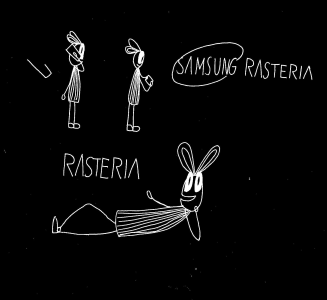 SAMSUNG RASTERIA
RASTERIA